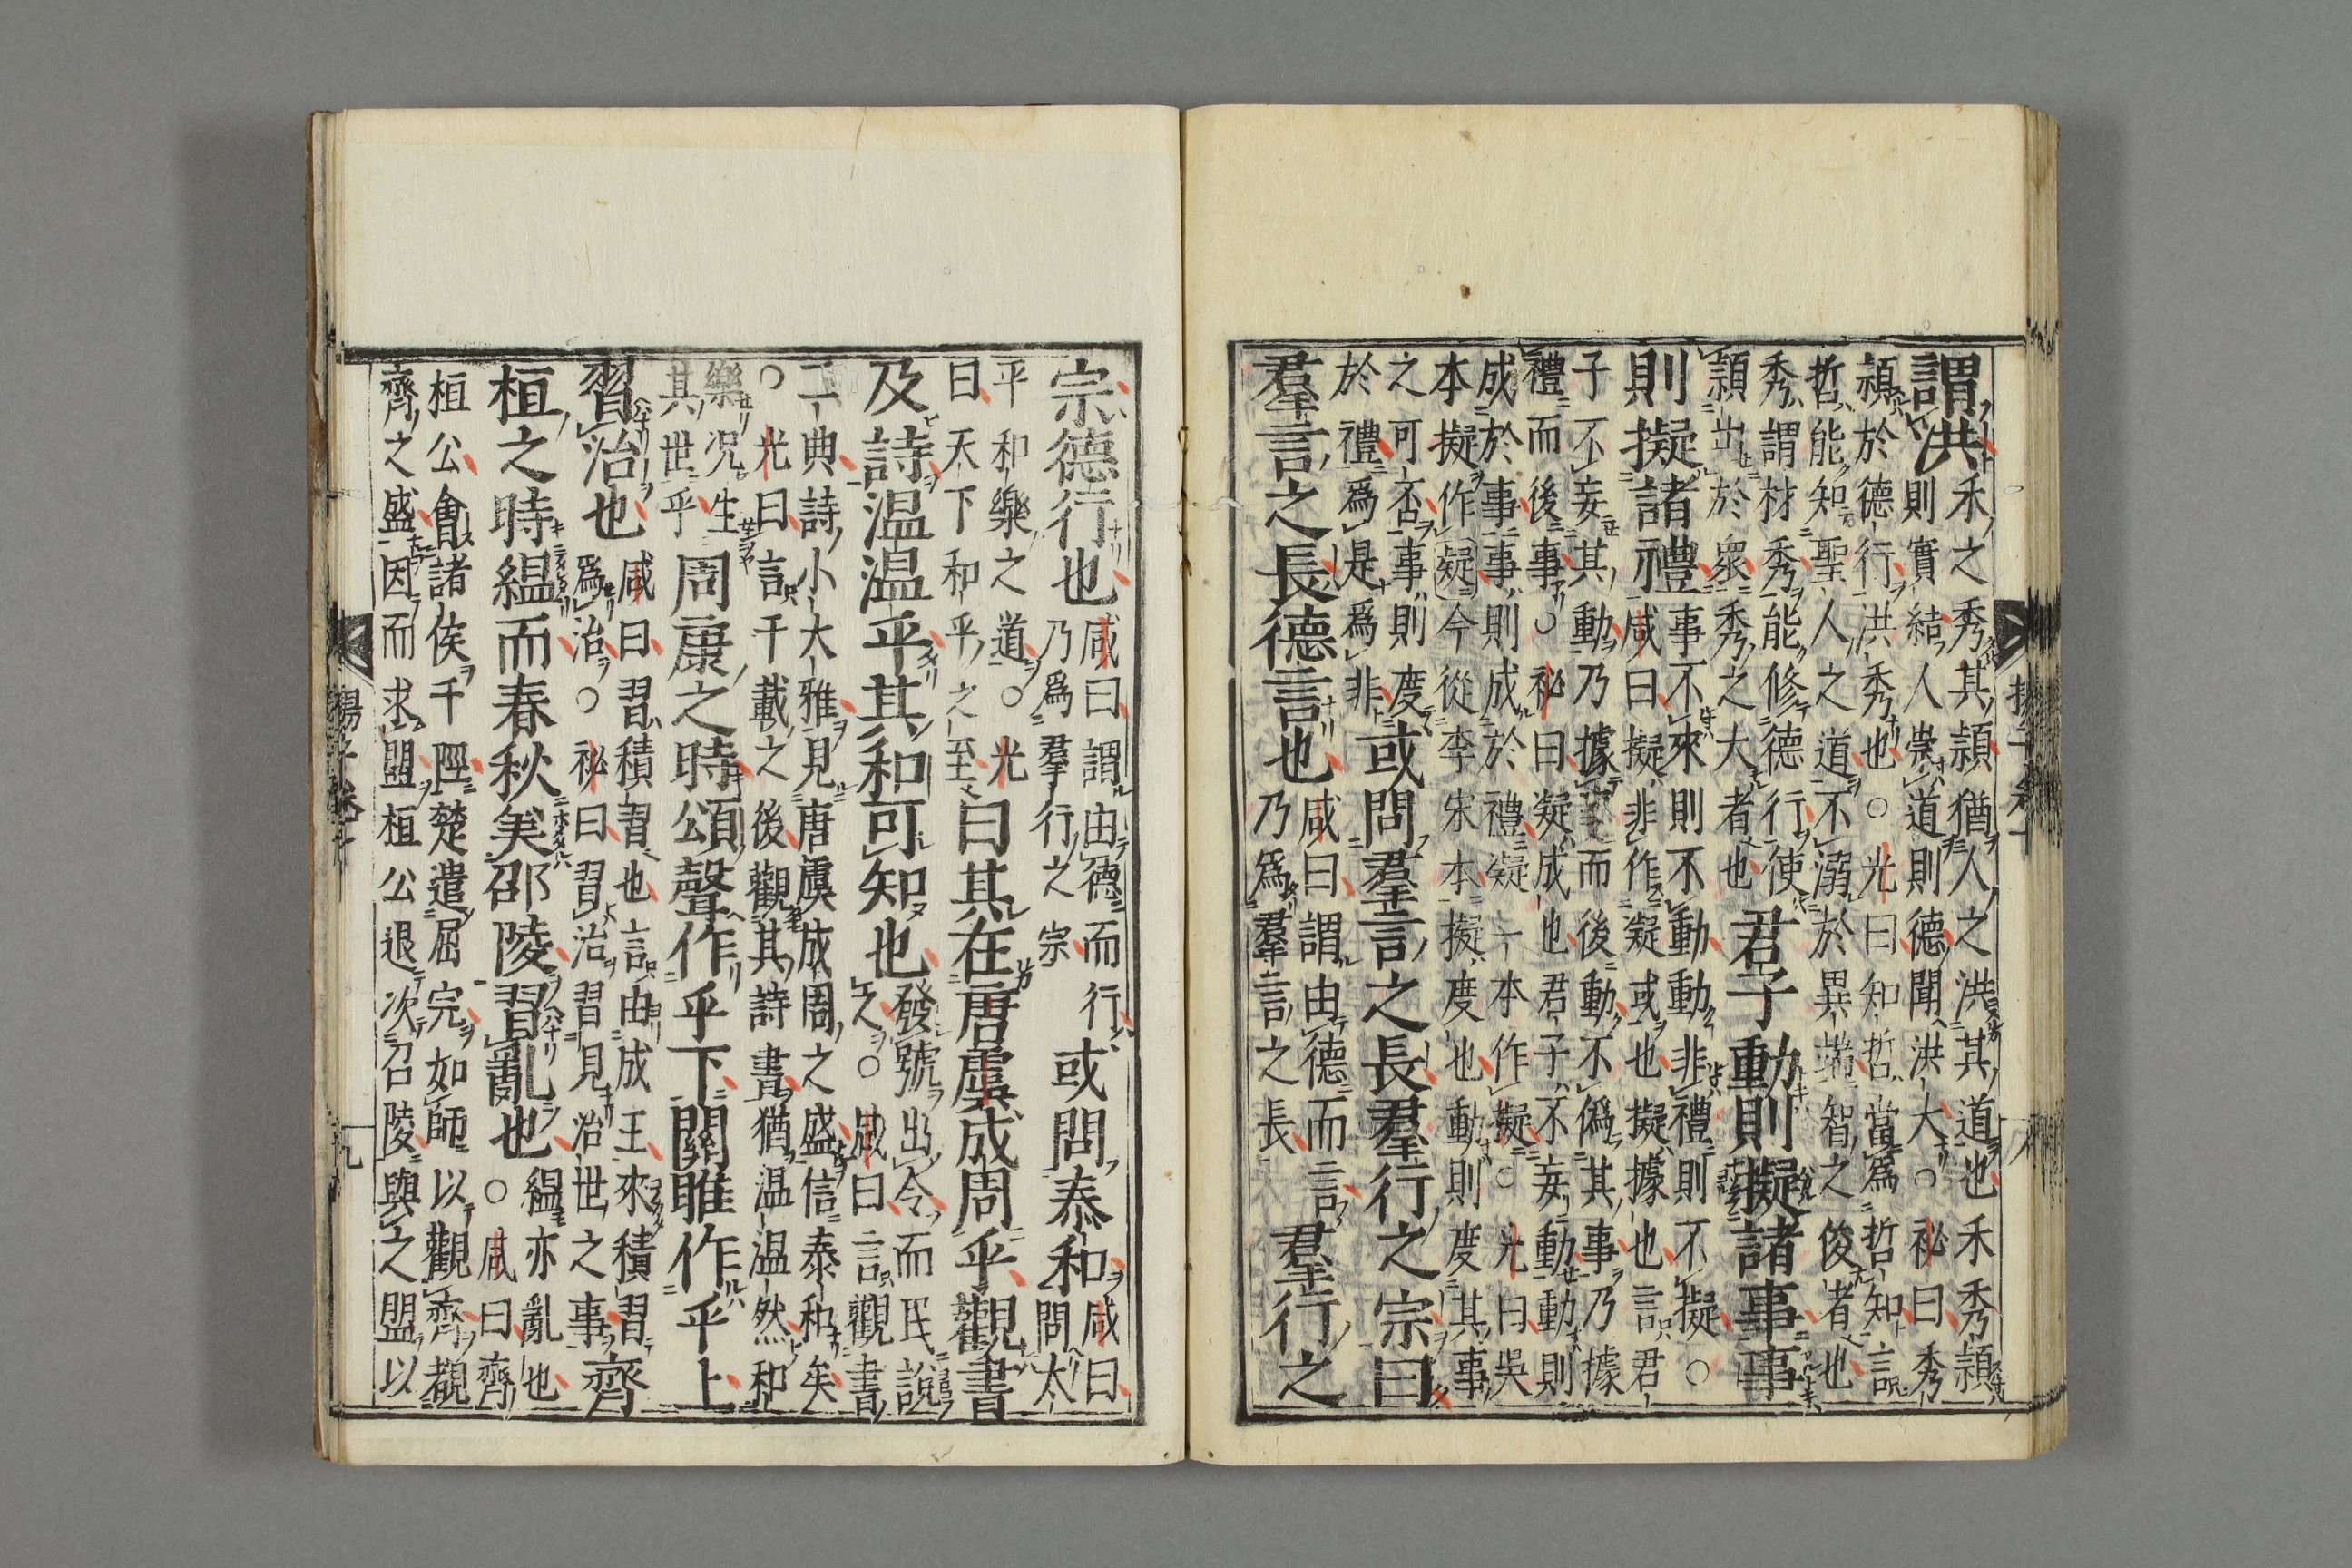 謂洪
禾之秀其頴猶人之洪其道也禾秀頴
則實結人崇道則德聞洪大○祕曰秀
頴於德行洪秀也○光曰知哲當爲哲知言
哲能知聖人之道不溺於異端智之俊者也
秀謂材秀能修德行使
頴出於衆秀之大者也
君子動則擬諸事事
則擬諸禮
事不來則不動動非禮則不擬○
咸曰擬非作凝或也擬據也言君
子不妄其動乃據事而後動不僞其事乃據
禮而後事○祕曰凝成也君子不妄動動則
成於事事則成於禮凝一本作擬○光曰吳
本擬作凝今從李宋本擬度也動則度其事
之可否事則度
於禮爲是爲非
或問羣言之長羣行之宗曰
羣言之長德言也
咸曰謂由德而言
乃爲羣言之長
羣行之
宗德行也
咸曰謂由德而行
乃爲羣行之宗
或問泰和
咸曰
問太
平和樂之道○光
曰天下和平之至
曰其在唐虞成周乎觀書
及詩温温乎其和可知也
發號出令而民說
之○咸曰言觀書
二典詩小大雅見唐虞成周之盛信泰和矣
○光曰言千載之後觀其詩書猶温温然和
樂况生
其世乎
周康之時頌聲作乎下關雎作乎上
習治也
咸曰習積習也言由成王來積習
爲治○祕曰習治習見治世之事
齊
桓之時緼而春秋美邵陵習亂也
緼亦亂也
○咸曰齊
桓公會諸侯千陘楚遣屈完如師以觀齊覩
齊之盛因而求盟桓公退次召陵與之盟以